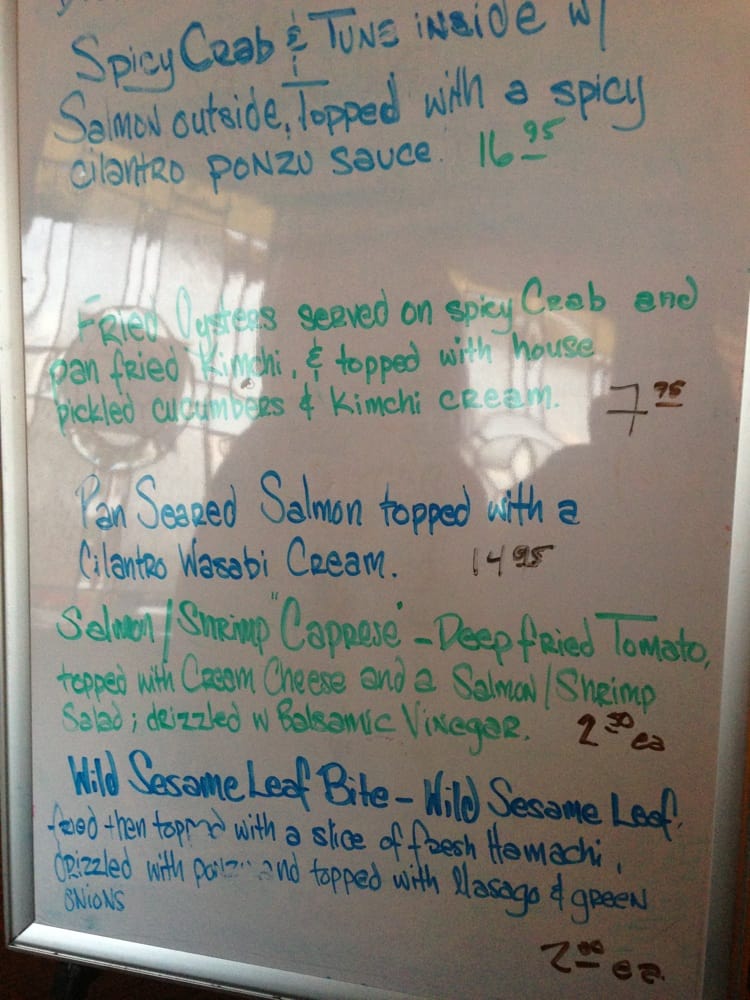 Spicy Crab & Tune inside w/
Salmon outside, Topped with a spicy
cilantro ponzu sauce. 16 95
Fried Oysters served on spicy Crab and
pan fried Kimchi, & topped with house
pickled cucumbers & Kimchi cream. 7 95
Pan Seared Salmon topped with a
Cilantro Wasabi Cream. 14 95
Salmon/Shrimp "Caprese" - Deep fried Tomato,
topped with Cream Cheese and a Salmon/Shrimp
Salad; drizzled w Balsamic Vinegar. 2 50 ea
Wild Sesame Leaf Bite - Wild Sesame Leaf
fried then topped with a slice of fresh Hamachi,
drizzled with ponzu and topped with Masago & green
onions
2 00 ea